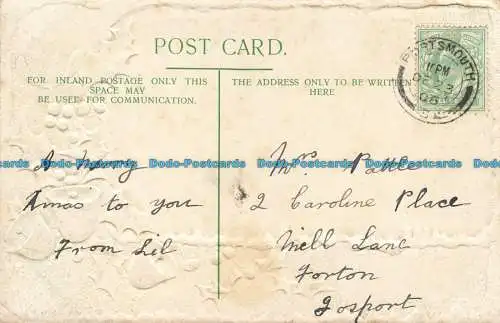 POST CARD.
FOR INLAND POSTAGE ONLY THIS
SPACE MAY
BE USED FOR COMMUNICATION.
THE ADDRESS ONLY TO BE WRITTEN
HERE
PORTSMOUTH
11 PM
DE 23
05
A Merry
Xmas to you
From Lil
Mrs
2 Caroline Place
Mill Lane
Forton
Gosport
Bodo-Postcards Bodo-Postcards Bodo-Postcards Bodo-Postcards